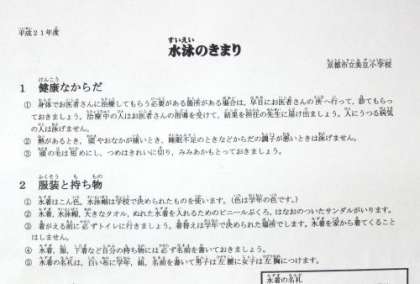 平成21年度
水泳のきまり
京都市立美豆小学校
1 健康なからだ
① 身体でお医者さんに治療してもらう必要がある箇所がある場合は、早目にお医者さんの所へ行って、診てもらっ
ておきましょう。治療中の人はお医者さんの指導を受けて、結果を担任の先生に届け出ましょう。人にうつる病気
の人は泳げません。
② 熱があるとき、頭やおなかが痛いとき、睡眠不足のときなどからだの調子が悪いときは泳げません。
③ 頭の毛は短めにし、つめはきれいに切り、みみあかもとっておきましょう。
2 服装と持ち物
① 水着はこん色、水泳帽は学校で決められたものを使います。(色は学年の色です。)
② 水着、水泳帽、大きなタオル、ぬれた水着を入れるためのビニールぶくろ、はなおのついたサンダルがいります。
③ 着がえる前に必ずトイレに行きましょう。着替えは学校で決められた場所でします。水着を家から着てくること
はしません。
④ 水着、靴、下着など自分の持ち物には必ず名前を書いておきましょう。
⑤ 水着の名札は、白い布に学年、組、名前を書いて男子は左腰に女子は左胸につけます。
水着の名札